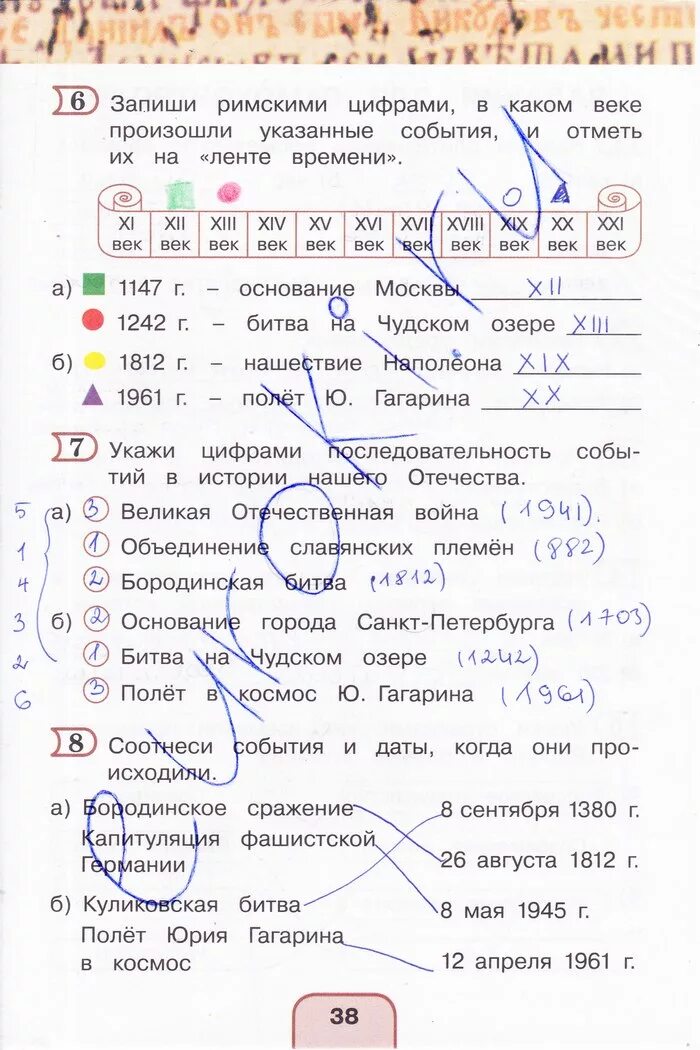 6 Запиши римскими цифрами, в каком веке
произошли указанные события, и отметь
их на «ленте времени».
XI век XII век XIII век XIV век XV век XVI век XVII век XVIII век XIX век XX век XXI век
а) 1147 г. – основание Москвы XII
1242 г. – битва на Чудском озере XIII
б) 1812 г. – нашествие Наполеона XIX
1961 г. – полёт Ю. Гагарина XX
7 Укажи цифрами последовательность собы-
тий в истории нашего Отечества.
5 а) 3 Великая Отечественная война (1941).
1 1 Объединение славянских племён (882)
4 2 Бородинская битва (1812)
3 б) 2 Основание города Санкт-Петербурга (1703)
2 1 Битва на Чудском озере (1242)
6 3 Полёт в космос Ю. Гагарина (1961)
8 Соотнеси события и даты, когда они про-
исходили.
а) Бородинское сражение 8 сентября 1380 г.
Капитуляция фашистской
Германии 26 августа 1812 г.
б) Куликовская битва 8 мая 1945 г.
Полёт Юрия Гагарина
в космос 12 апреля 1961 г.
38